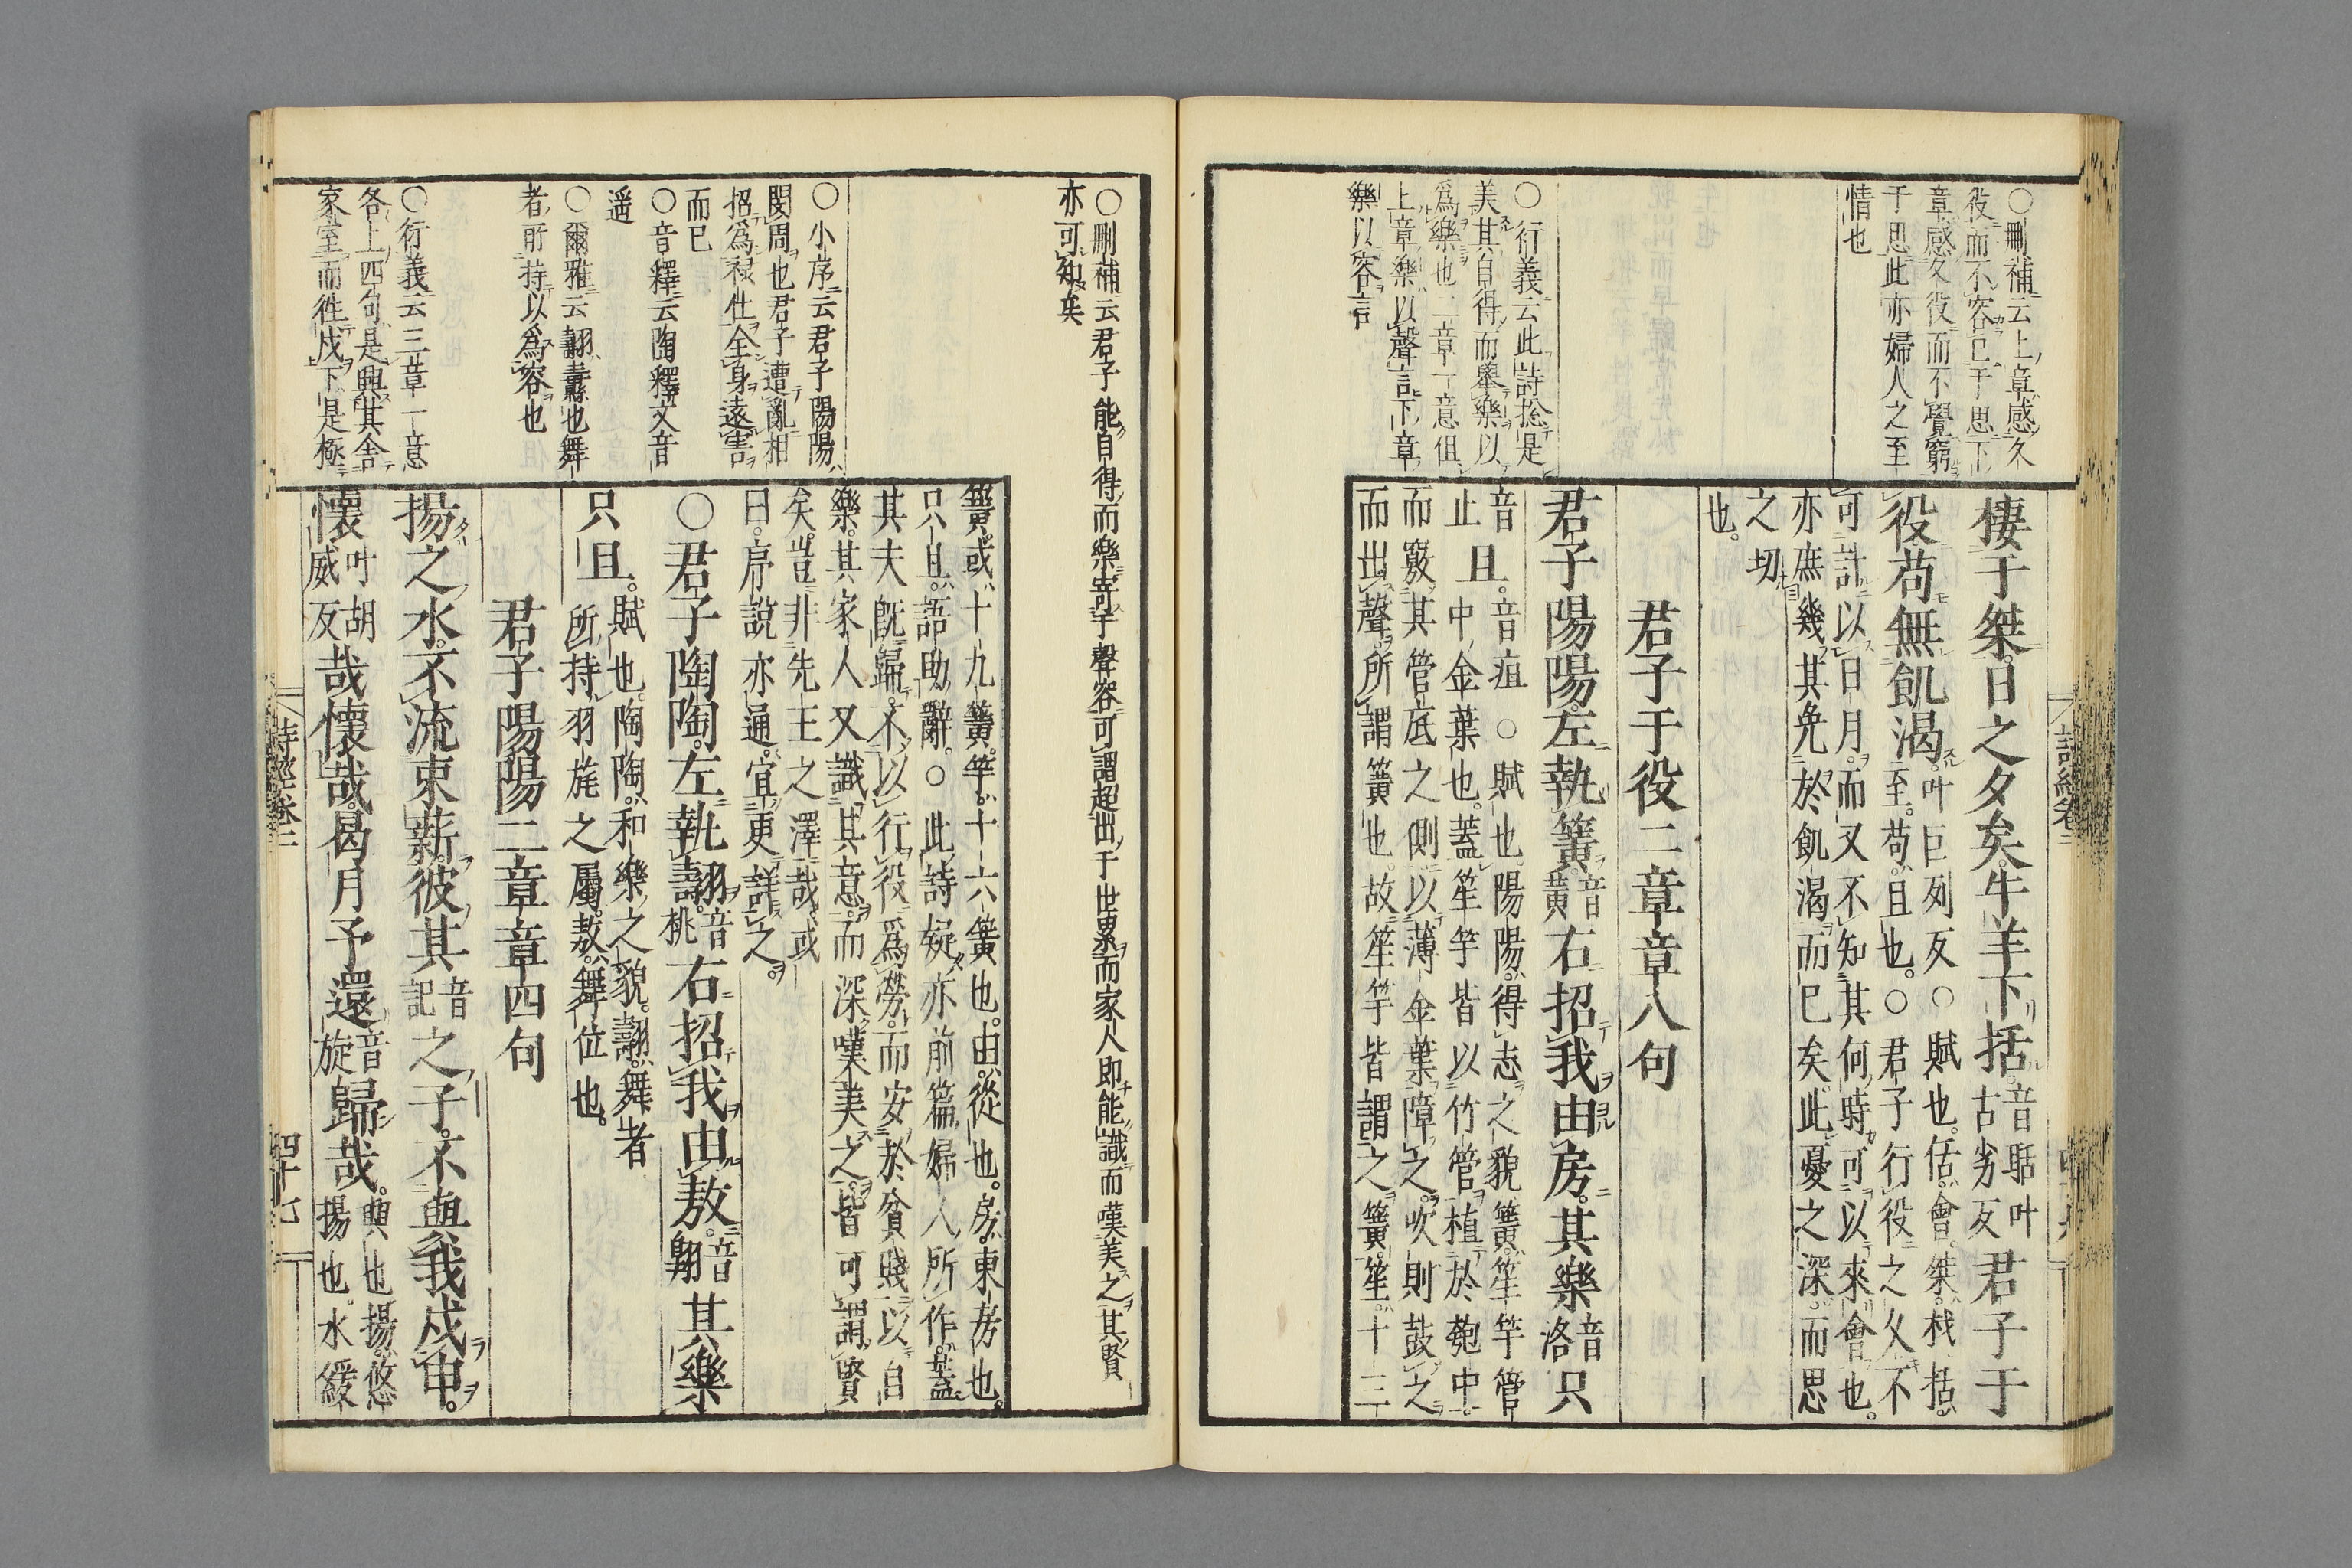 ○刪補云上章感久
役而不容已于思下
章感久役而不覺窮
于思此亦婦人之至
情也
○衍義云此詩捴是
美其自得而舉樂以
爲樂也二章一意但
上章樂以聲言下章
樂以容言
棲于桀日之夕矣牛羊下括音聒叶古劣反君子于
役苟無飢渴叶巨列反○賦也佸會桀杙括
至苟且也○君子行役之久不
可計以日月而又不知其何時可以來會也
亦庶幾其免於飢渴而已矣此憂之深而思
之切
也
君子于役二章章八句
君子陽陽左執簧音黃右招我由房其樂音洛只
音止且音疽○賦也陽陽得志之貌簧笙竽管
中金葉也蓋笙竽皆以竹管植於匏中
而竅其管底之側以薄金葉障之吹則鼓之
而出聲所謂簧也故笙竽皆謂之簧笙十三
詩經卷二
○刪補云君子能自得而樂寄于聲容可謂超出于世累而家人即能識而嘆美之其賢
亦可知矣
○小序云君子陽陽
閔周也君子遭亂相
招爲祿仕全身遠害
而已
○音釋云陶釋文音
遥
○爾雅云翿纛也舞
者所持以爲容也
○衍義云三章一意
各上四句是興其舍
家室而徃戍下是極
簧或十九簧竽十六簧也由從也房東房也
只且語助辭○此詩疑亦前篇婦人所作蓋
其夫既歸不以行役爲勞而安於貧賤以自
樂其家人又識其意而深嘆美之皆可謂賢
矣豈非先王之澤哉或
曰序說亦通宜更詳之
○君子陶陶左執翿音桃右招我由敖音翺其樂
只且賦也陶陶和樂之貌翿舞者
所持羽旄之屬敖舞位也
君子陽陽二章章四句
揚之水不流束薪彼其音記之子不與我戍申
懷叶胡威反哉懷哉曷月予還音旋歸哉興也揚悠
揚也水緩
詩經卷二
四十七